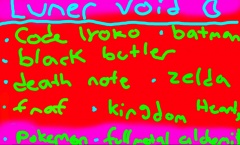 Luner Void
· Code lyoko · batman
· black butler
· death note · zelda
· fnaf · kingdom Hearts
· Pokemon · full metal